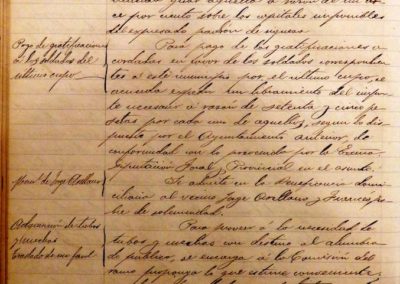 ce por ciento sobre los capitales imponibles
del expresado padron de riqueza
Pago de gratificaciones
a los soldados del
ultimo cupo
Para pago de las gratificaciones a-
cordadas en favor de los soldados correspondien-
tes á este municipio por el ultimo cupo, se
acuerda expedir un libramiento del impor-
te necesario á razon de setenta y cinco pe-
setas por cada uno de aquellos, segun lo dis-
puesto por el Ayuntamiento anterior, de
conformidad con lo prevenido por la Excma
Diputacion Foral y Provincial en el asunto.
Jorge Orellano
Se admite en la Beneficencia domi-
ciliaria al vecino Jorge Orellano y
pobre de solemnidad.
Adquisicion de tubos
y mechas
Para proveer á la necesidad de
tubos y mechas con destino al alumbra-
do público, se encarga á la Comision del
ramo proponga lo que estime conveniente